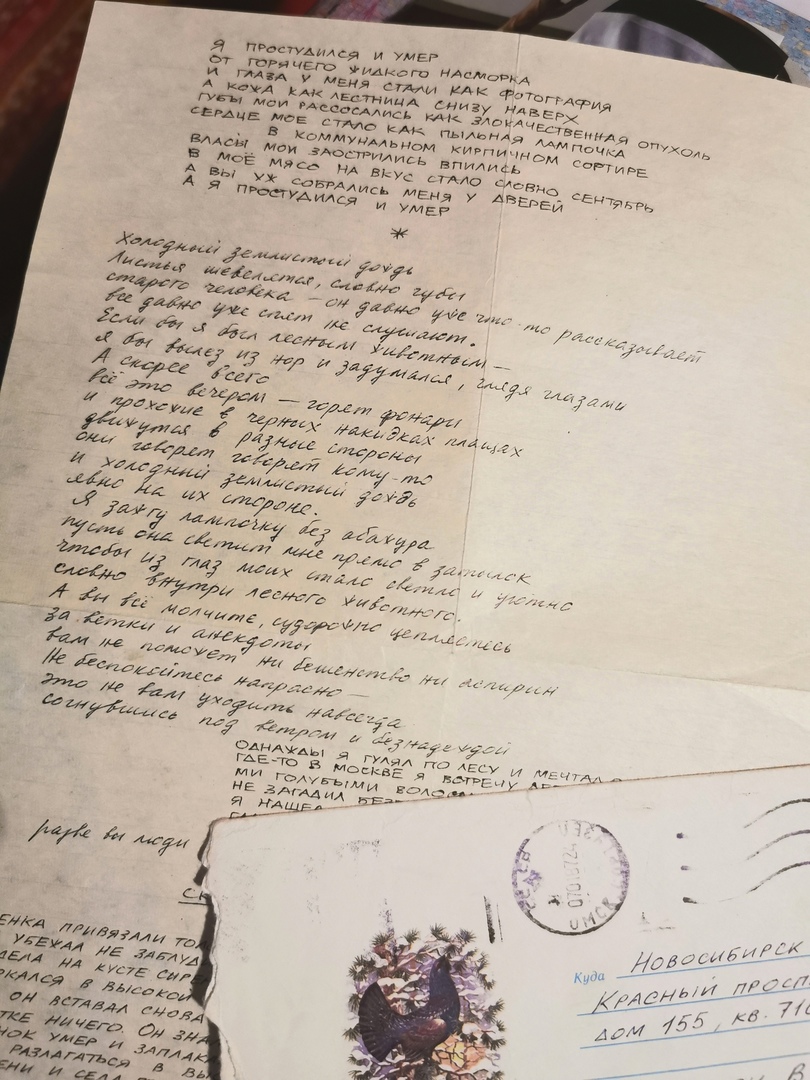 Я ПРОСТУДИЛСЯ И УМЕР
ОТ ГОРЯЧЕГО ЖИДКОГО НАСМОРКА
И ГЛАЗА У МЕНЯ СТАЛИ КАК ФОТОГРАФИЯ
А КОЖА КАК ЛЕСТНИЦА СНИЗУ НАВЕРХ
ГУБЫ МОИ РАССОСАЛИСЬ КАК ЗЛОКАЧЕСТВЕННАЯ ОПУХОЛЬ
СЕРДЦЕ МОЕ СТАЛО КАК ПЫЛЬНАЯ ЛАМПОЧКА
В КОММУНАЛЬНОМ КИРПИЧНОМ СОРТИРЕ
ВЛАСЫ МОИ ЗАОСТРИЛИСЬ ВПИЛИСЬ
В МОЁ МЯСО НА ВКУС СТАЛО СЛОВНО СЕНТЯБРЬ
А ВЫ УЖ СОБРАЛИСЬ МЕНЯ У ДВЕРЕЙ
А Я ПРОСТУДИЛСЯ И УМЕР
*
Холодный землистый дождь
Листья шевелятся, словно губы
старого человека — он давно уже что-то рассказывает
все давно уже спят не слушают.
Если бы я был лесным животным —
я бы вылез из нор и задумался, глядя глазами
А скорее всего
всё это вечером — горят фонари
и прохожие в черных накидках плащах
движутся в разные стороны
они говорят говорят кому-то
и холодный землистый дождь
явно на их стороне.
Я зажгу лампочку без абажура
пусть она светит мне прямо в затылок
чтобы из глаз моих стало светло и уютно
словно внутри лесного животного.
А вы всё молчите, судорожно цепляетесь
за ветки и анекдоты
вам не поможет ни бешенство ни аспирин
Не беспокойтесь напрасно —
это не вам уходить навсегда
согнувшись под ветром и безнадеждой
ОДНАЖДЫ Я ГУЛЯЛ ПО ЛЕСУ И МЕЧТАЛ
ГДЕ-ТО В МОСКВЕ Я ВСТРЕЧУ
МИ ГОЛУБЫМИ
НЕ ЗАГАДИЛ
Я НАШЕЛ
разве вы люди
ЕНКА ПРИВЯЗАЛИ
УБЕЖАЛ НЕ ЗАБЛУД
ДЕЛА НА КУСТЕ
РКАЛСЯ В ВЫСОКОЙ
ОН ВСТАВАЛ СНОВА
ТКЕ НИЧЕГО. ОН ЗНА
НОК УМЕР И ЗАПЛАК
РАЗЛАГАТЬСЯ В
ЕНИ И СЕЛА
ОМСК
Куда НОВОСИБИРСК
КРАСНЫЙ ПРОСП
ДОМ 155, КВ. 710